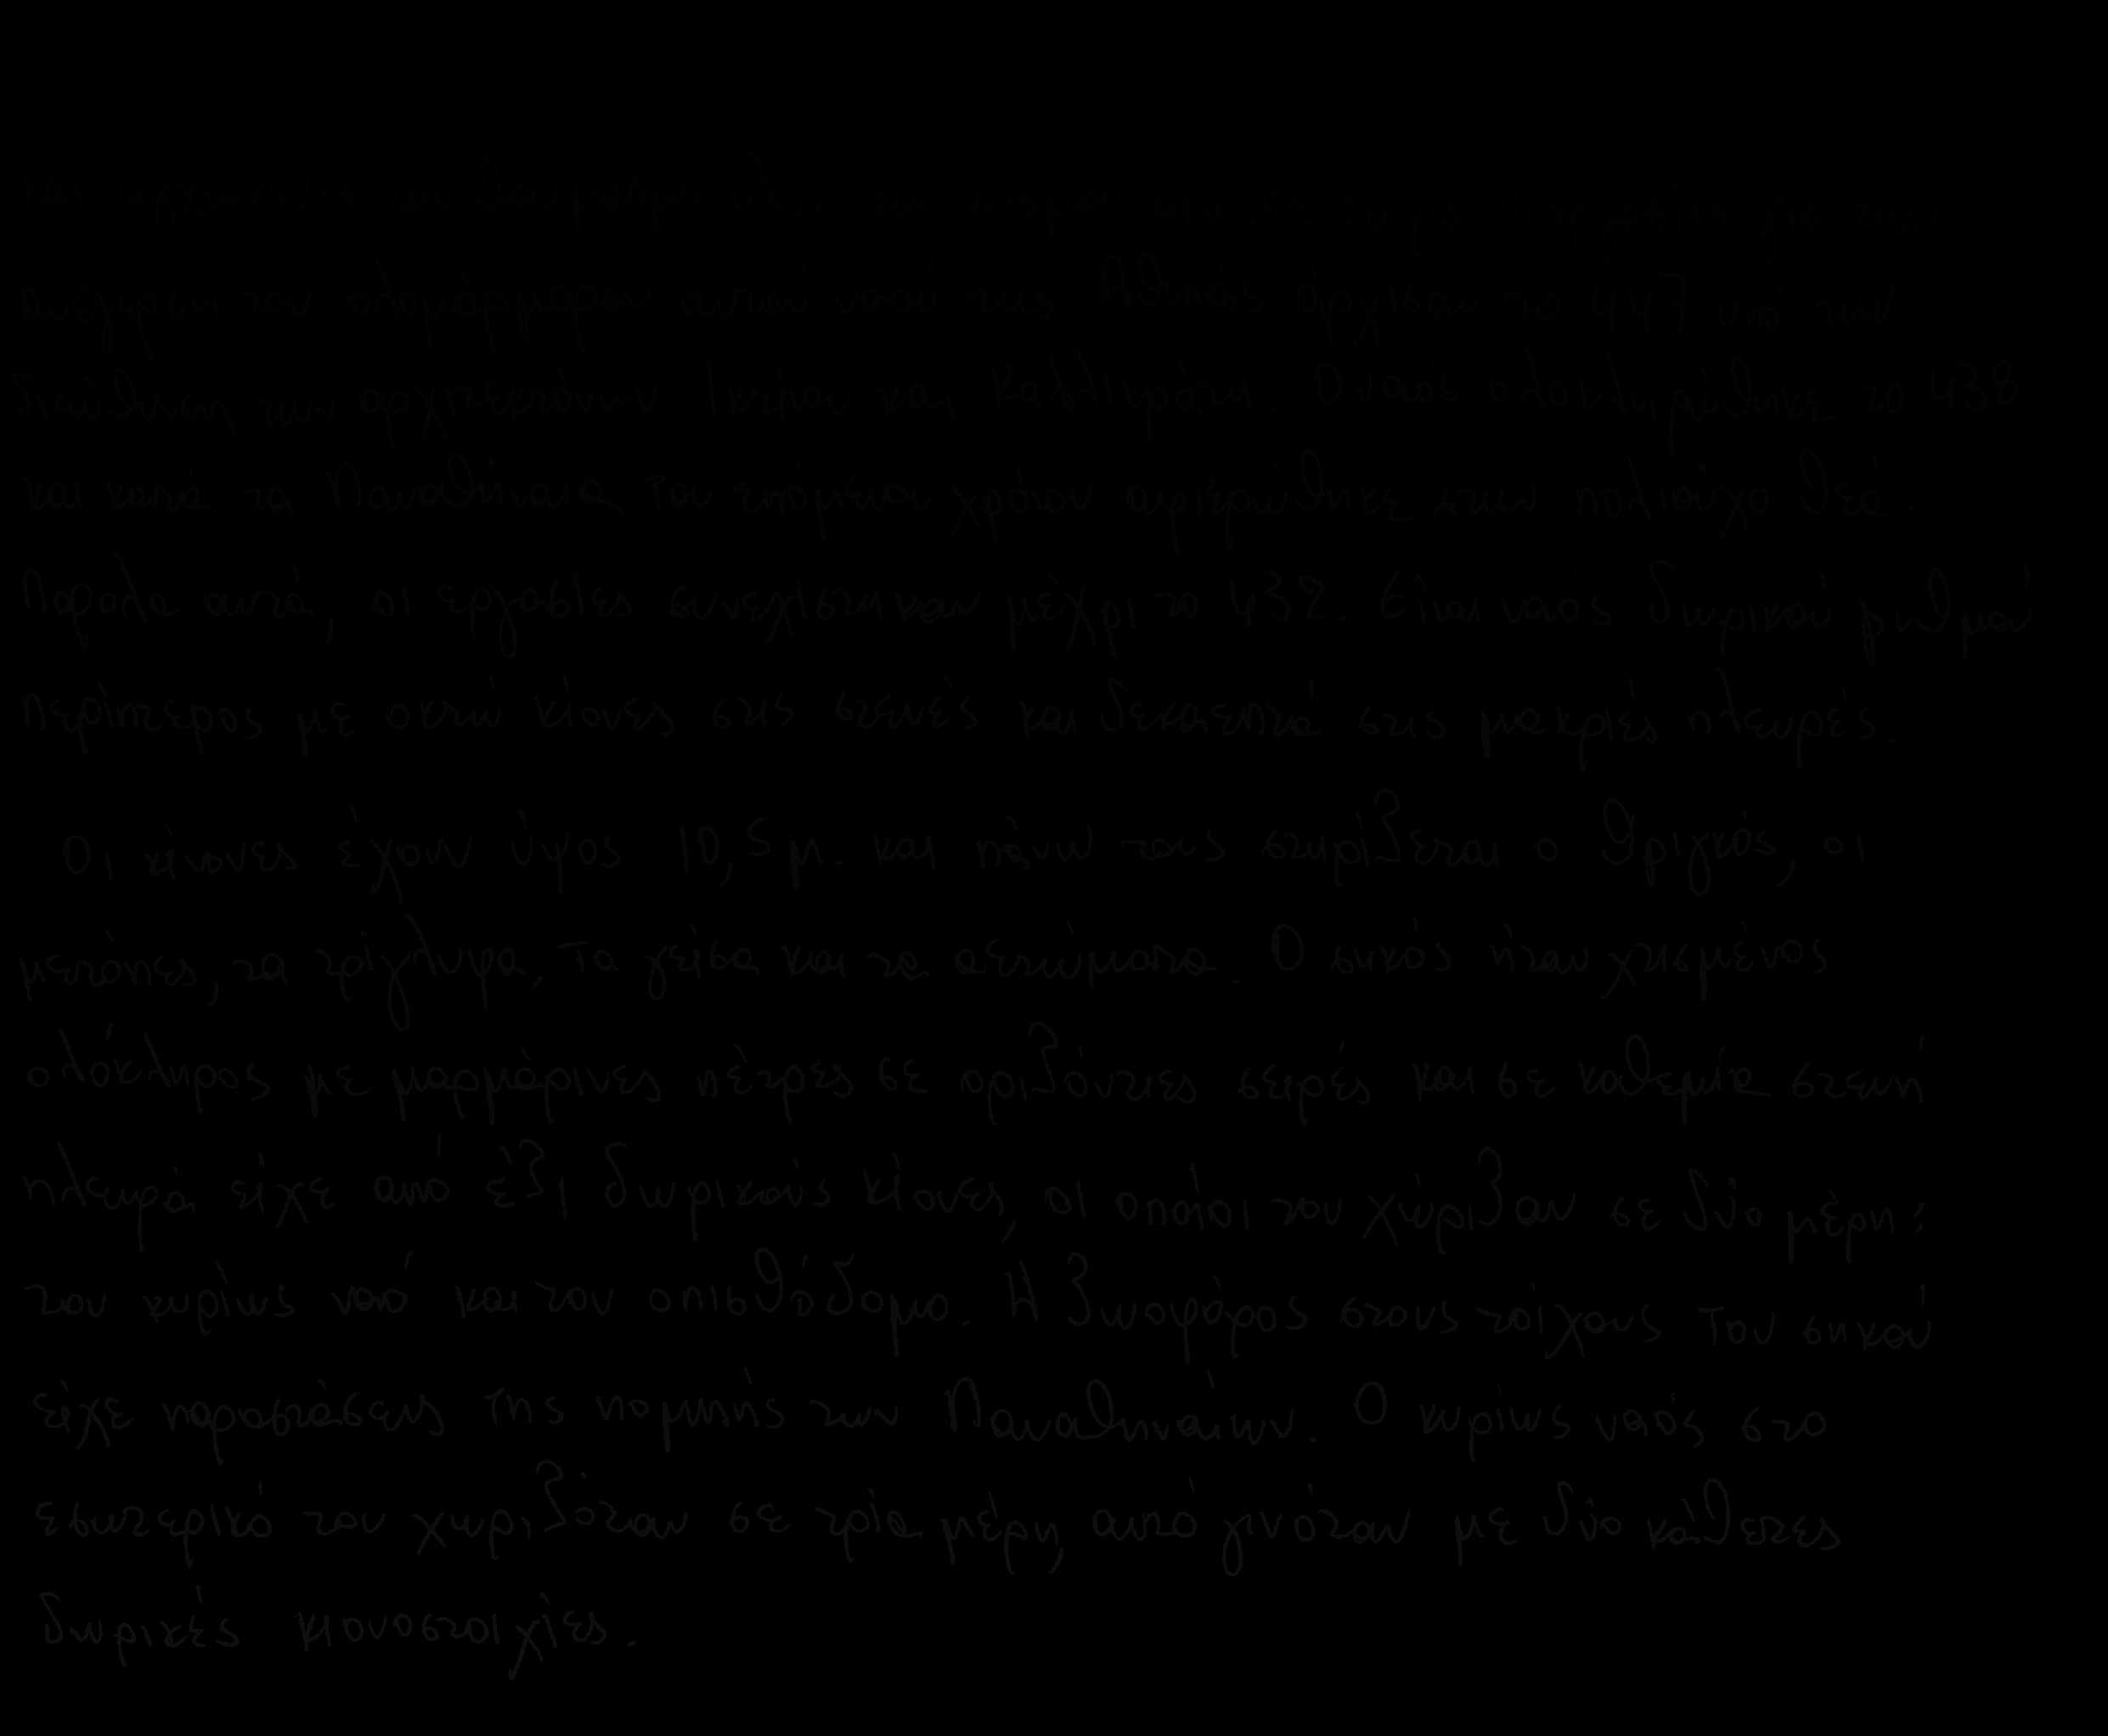 και συγκινεί τον θαυμασμό όλου του κόσμου αιώνες τώρα. Οι εργασίες για την
ανέγερση του ολομάρμαρου αυτού ναού της Αθηνάς άρχισαν το 447 υπό την
διεύθυνση των αρχιτεκτόνων Ικτίνου και Καλλικράτη. Ο ναός ολοκληρώθηκε το 438
και κατά τα Παναθήναια του επόμενου χρόνου αφιερώθηκε στην πολιούχο θεά.
Παρόλα αυτά, οι εργασίες συνεχίστηκαν μέχρι το 432. Είναι ναός δωρικού ρυθμού
περίπτερος με οκτώ κίονες στις στενές και δεκαεπτά στις μακριές πλευρές.
Οι κίονες έχουν ύψος 10,5 μ. και πάνω τους στηρίζεται ο θριγκός, οι
μετόπες, τα τρίγλυφα, τα γείσα και τα αετώματα. Ο σηκός ήταν χτισμένος
ολόκληρος με μαρμάρινες πέτρες σε οριζόντιες σειρές και σε καθεμία στενή
πλευρά είχε από έξι δωρικούς κίονες, οι οποίοι τον χώριζαν σε δύο μέρη:
τον κυρίως ναό και τον οπισθόδομο. Η ζωοφόρος στους τοίχους του σηκού
είχε παραστάσεις της πομπής των Παναθηναίων. Ο κυρίως ναός στο
εσωτερικό του χωριζόταν σε τρία μέρη, αυτό γινόταν με δύο κάθετες
δωρικές κιονοστοιχίες.